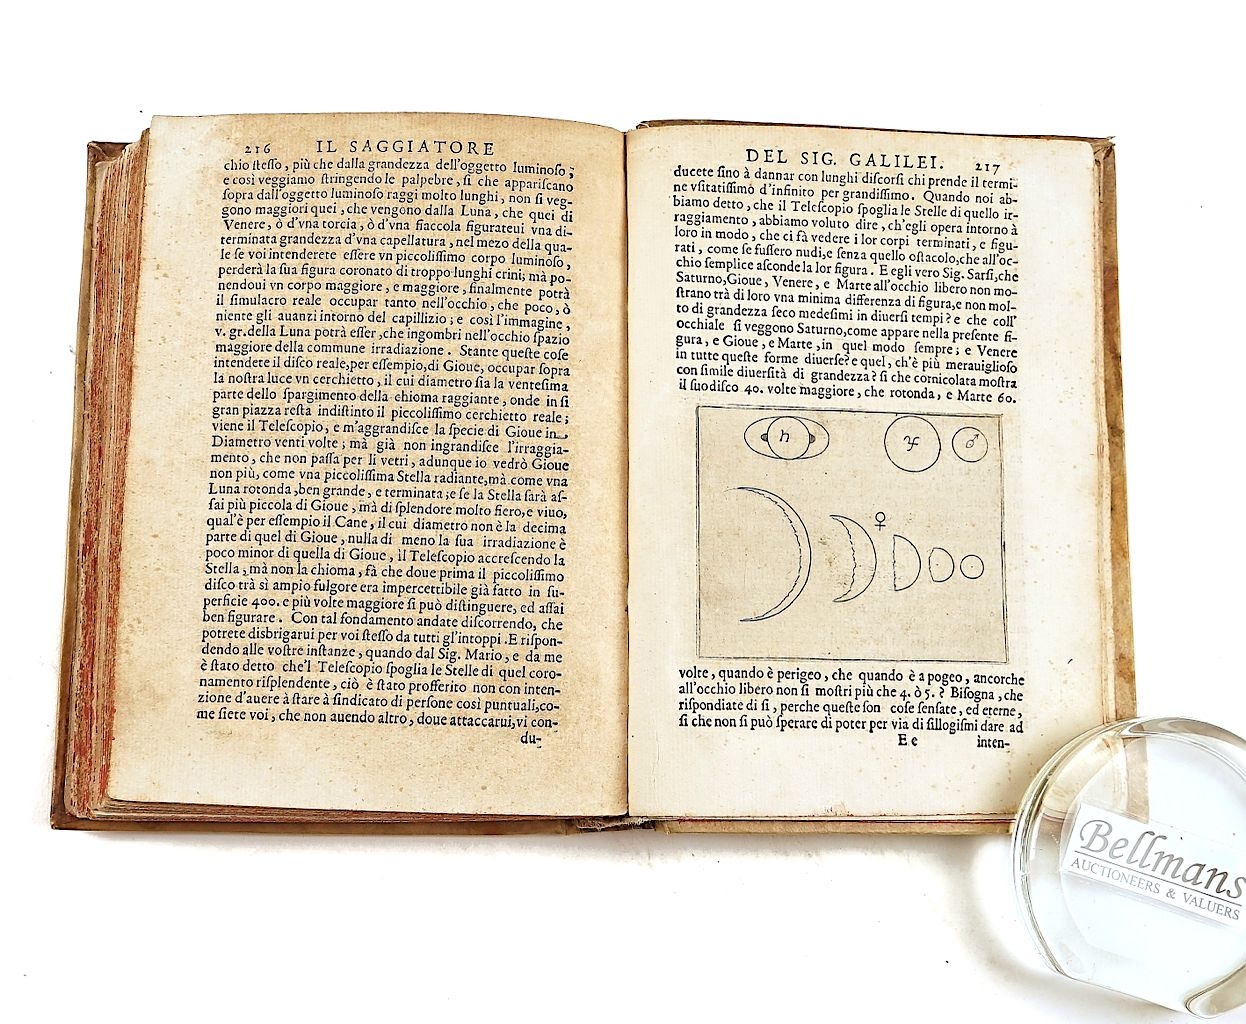 216 IL SAGGIATORE
chio ſteſſo, più che dalla grandezza dell'oggetto luminoſo;
e così veggiamo ſtringendo le palpebre, ſi che appariſcano
ſopra dall'oggetto luminoſo raggi molto lunghi, non ſi veg-
gono maggiori quei, che vengono dalla Luna, che quei di
Venere, ò d'vna torcia, ò d'vna fiaccola figurateui vna di-
terminata grandezza d'vna capellatura, nel mezo della qua-
le ſe voi intenderete eſſere vn piccoliſſimo corpo luminoſo,
perderà la ſua figura coronato di troppo lunghi crini; mà po-
nendoui vn corpo maggiore, e maggiore, finalmente potrà
il ſimulacro reale occupar tanto nell'occhio, che poco, ò
niente gli auanzi intorno del capillizio; e così l'immagine,
v. gr. della Luna potrà eſſer, che ingombri nell'occhio ſpazio
maggiore della commune irradiazione. Stante queſte coſe
intendete il diſco reale, per eſſempio, di Gioue, occupar ſopra
la noſtra luce vn cerchietto, il cui diametro ſia la venteſima
parte dello ſpargimento della chioma raggiante, onde in ſi
gran piazza reſta indiſtinto il piccoliſſimo cerchietto reale;
viene il Teleſcopio, e m'aggrandiſce la ſpecie di Gioue in
Diametro venti volte; mà già non ingrandiſce l'irraggia-
mento, che non paſſa per li vetri, adunque io vedrò Gioue
non più, come vna piccoliſſima Stella radiante, mà come vna
Luna rotonda, ben grande, e terminata; e ſe la Stella ſarà aſ-
ſai più piccola di Gioue, mà di ſplendore molto fiero, e viuo,
qual'è per eſſempio il Cane, il cui diametro non è la decima
parte di quel di Gioue, nulla di meno la ſua irradiazione è
poco minor di quella di Gioue, il Teleſcopio accreſcendo la
Stella, mà non la chioma, fà che doue prima il piccoliſſimo
diſco trà sì ampio fulgore era impercettibile già fatto in ſu-
perficie 400. e più volte maggiore ſi può diſtinguere, ed aſſai
ben figurare. Con tal fondamento andate diſcorrendo, che
potrete disbrigarui per voi ſteſſo da tutti gl'intoppi. E riſpon-
dendo alle voſtre inſtanze, quando dal Sig. Mario, e da me
è ſtato detto che'l Teleſcopio ſpoglia le Stelle di quel coro-
namento riſplendente, ciò è ſtato profferito non con inten-
zione d'auere à ſtare à ſindicato di perſone così puntuali, co-
me ſiete voi, che non auendo altro, doue attaccarui, vi con-
du-
DEL SIG. GALILEI. 217
ducete ſino à dannar con lunghi diſcorſi chi prende il termi-
ne vſitatiſſimo d'infinito per grandiſſimo. Quando noi ab-
biamo detto, che il Teleſcopio ſpoglia le Stelle di quello ir-
raggiamento, abbiamo voluto dire, ch'egli opera intorno à
loro in modo, che ci fà vedere i lor corpi terminati, e figu-
rati, come ſe fuſſero nudi, e ſenza quello oſtacolo, che all'oc-
chio ſemplice aſconde la lor figura. E egli vero Sig. Sarſi, che
Saturno, Gioue, Venere, e Marte all'occhio libero non mo-
ſtrano trà di loro vna minima differenza di figura, e non mol-
to di grandezza ſeco medeſimi in diuerſi tempi? e che coll'
occhiale ſi veggono Saturno, come appare nella preſente fi-
gura, e Gioue, e Marte, in quel modo ſempre; e Venere
in tutte queſte forme diuerſe? e quel, ch'è più merauiglioſo
con ſimile diuerſità di grandezza? ſi che cornicolata moſtra
il ſuo diſco 40. volte maggiore, che rotonda, e Marte 60.
♄ ♃ ♂
♀
volte, quando è perigeo, che quando è apogeo, ancorche
all'occhio libero non ſi moſtri più che 4. ò 5.? Biſogna, che
riſpondiate di ſi, perche queſte ſon coſe ſenſate, ed eterne,
ſi che non ſi può ſperare di poter per via di ſillogiſmi dare ad
E e inten-
Bellmans
AUCTIONEERS & VALUERS